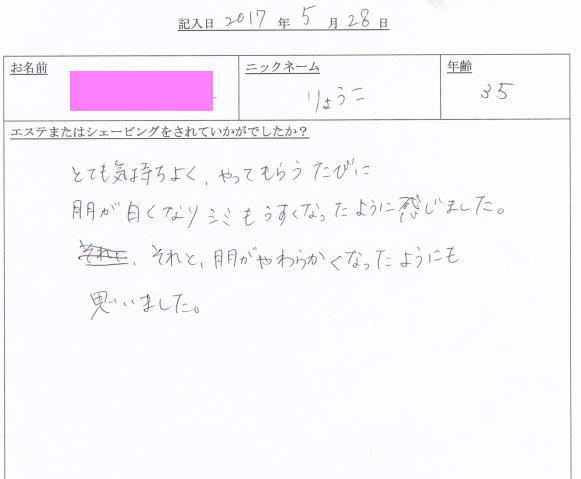 記入日 2017 年 5 月 28 日
お名前 ニックネーム 年齢
りょうこ 35
エステまたはシェービングをされていかがでしたか？
とても気持ちよく、やってもらうたびに
肌が白くなりシミもうすくなったように感じました。
それと、それと、肌がやわらかくなったようにも
思いました。